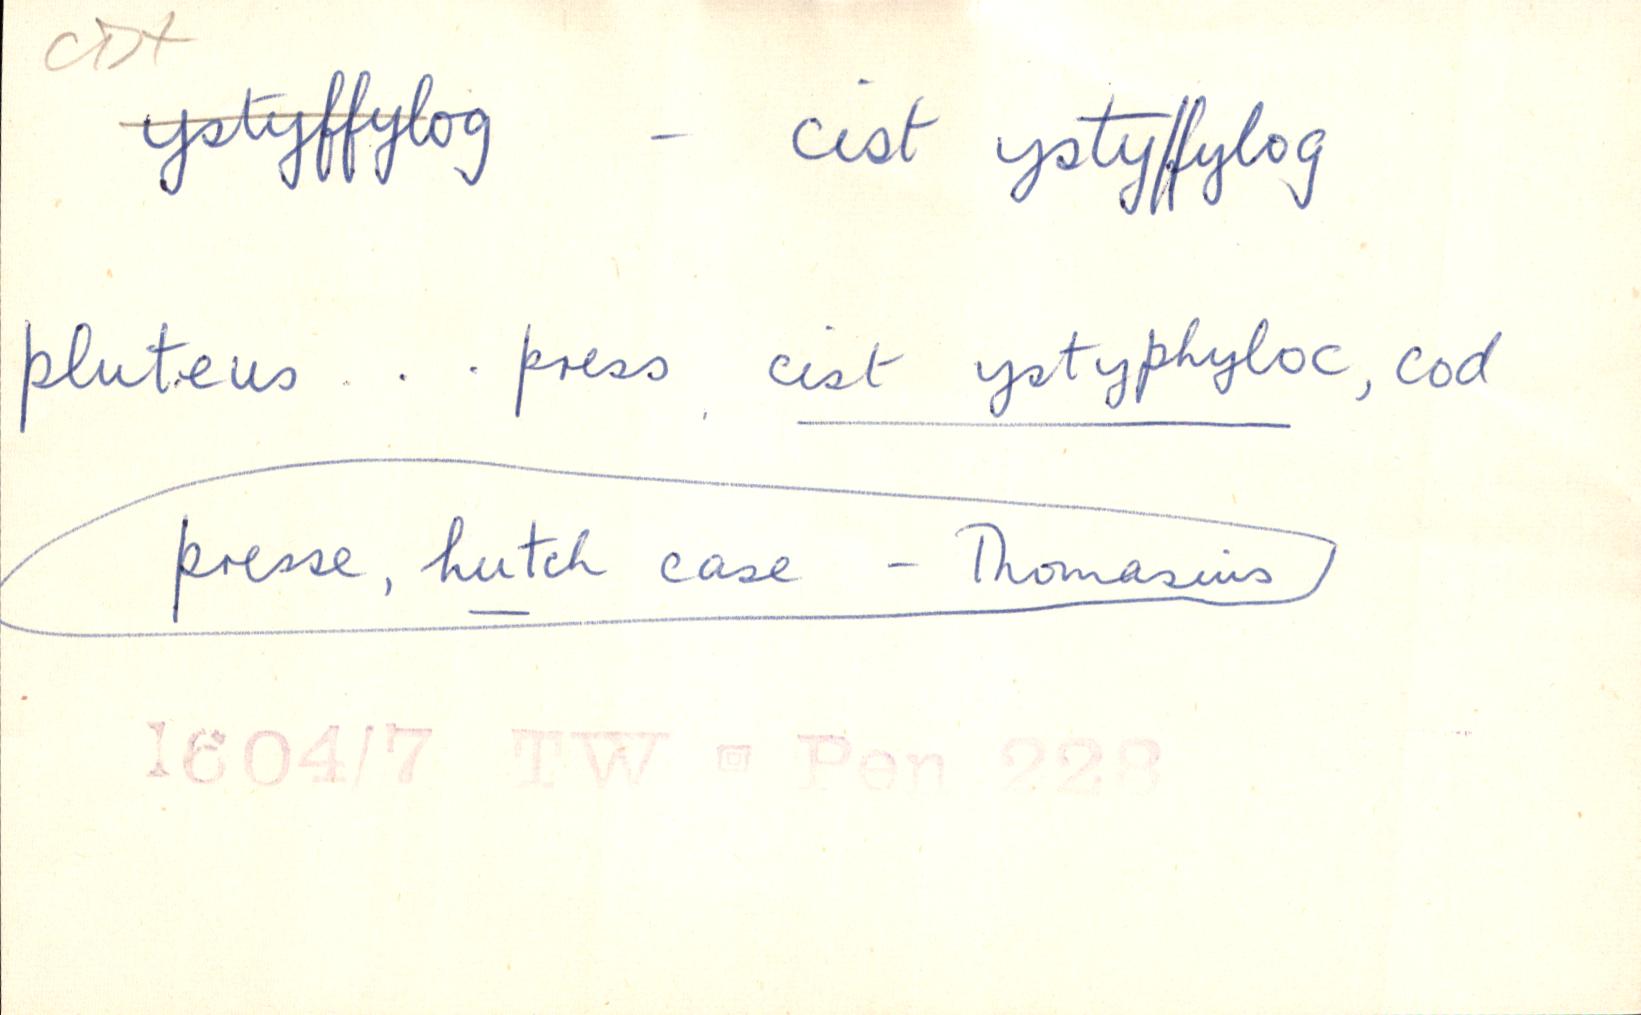 ystyffylog - cist ystyffylog
pluteus . . . press, cist ystyphyloc, cod
presse, hutch case - Thomasius
1604/7 TW = Pen 228